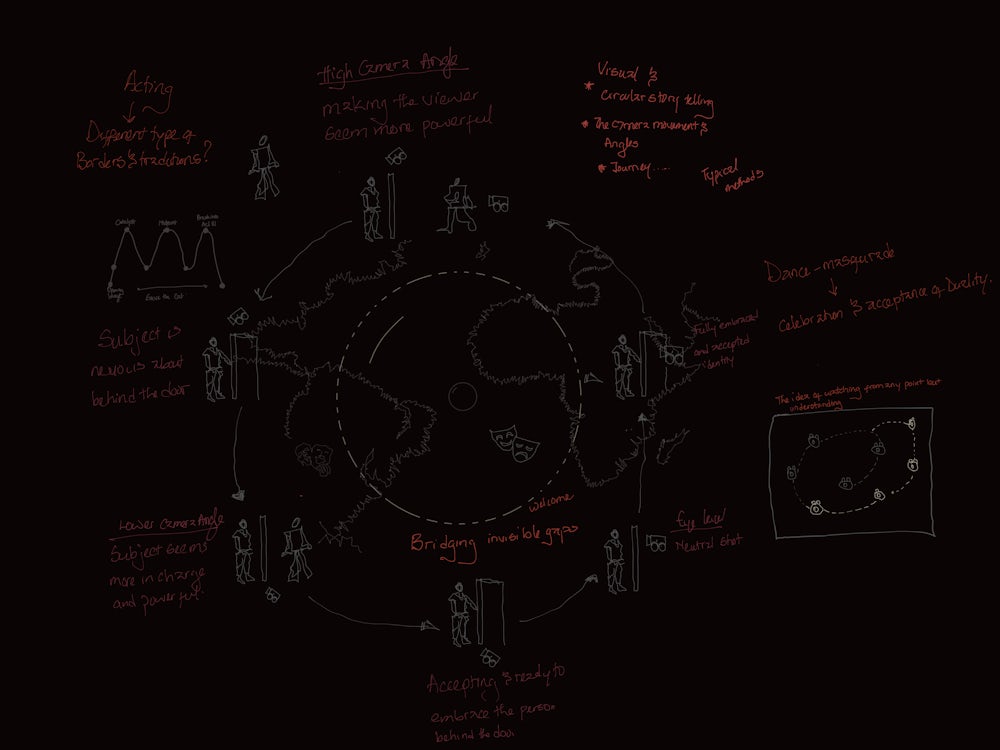 Acting
Different type of
Borders & traditions?
High Camera Angle
making the viewer
seem more powerful
Visual &
* Circular story telling
* The camera movement &
Angles
* Journey....
Typical
methods
Catalyst
Midpoint
Subject is
nervous about
behind the door
Dance - masqurade
Celebration & acceptance of Duality.
Fully embraced
and accepted
identity
The idea of watching from any point but
understanding
welcome
Bridging invisible gaps
Lower Camera Angle
Subject seems
more in charge
and powerful.
Eye level
Neutral shot
Accepting & ready to
embrace the person
behind the door